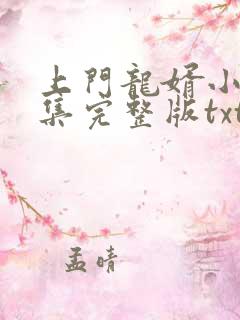 上門龍婿小
集完整版txt
孟晴